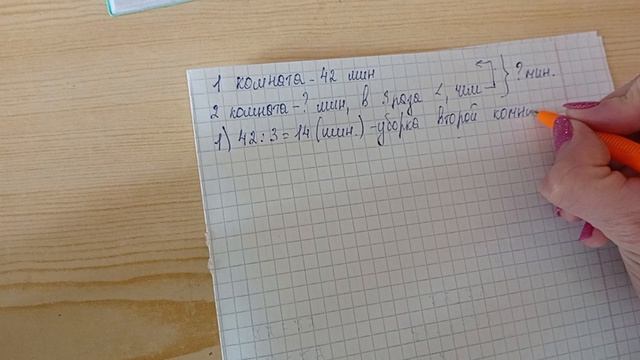 1 комната - 42 мин
2 комната - ? мин, в 3 раза <, чем } ? мин.
1) 42 : 3 = 14 (мин.) - уборка второй комна